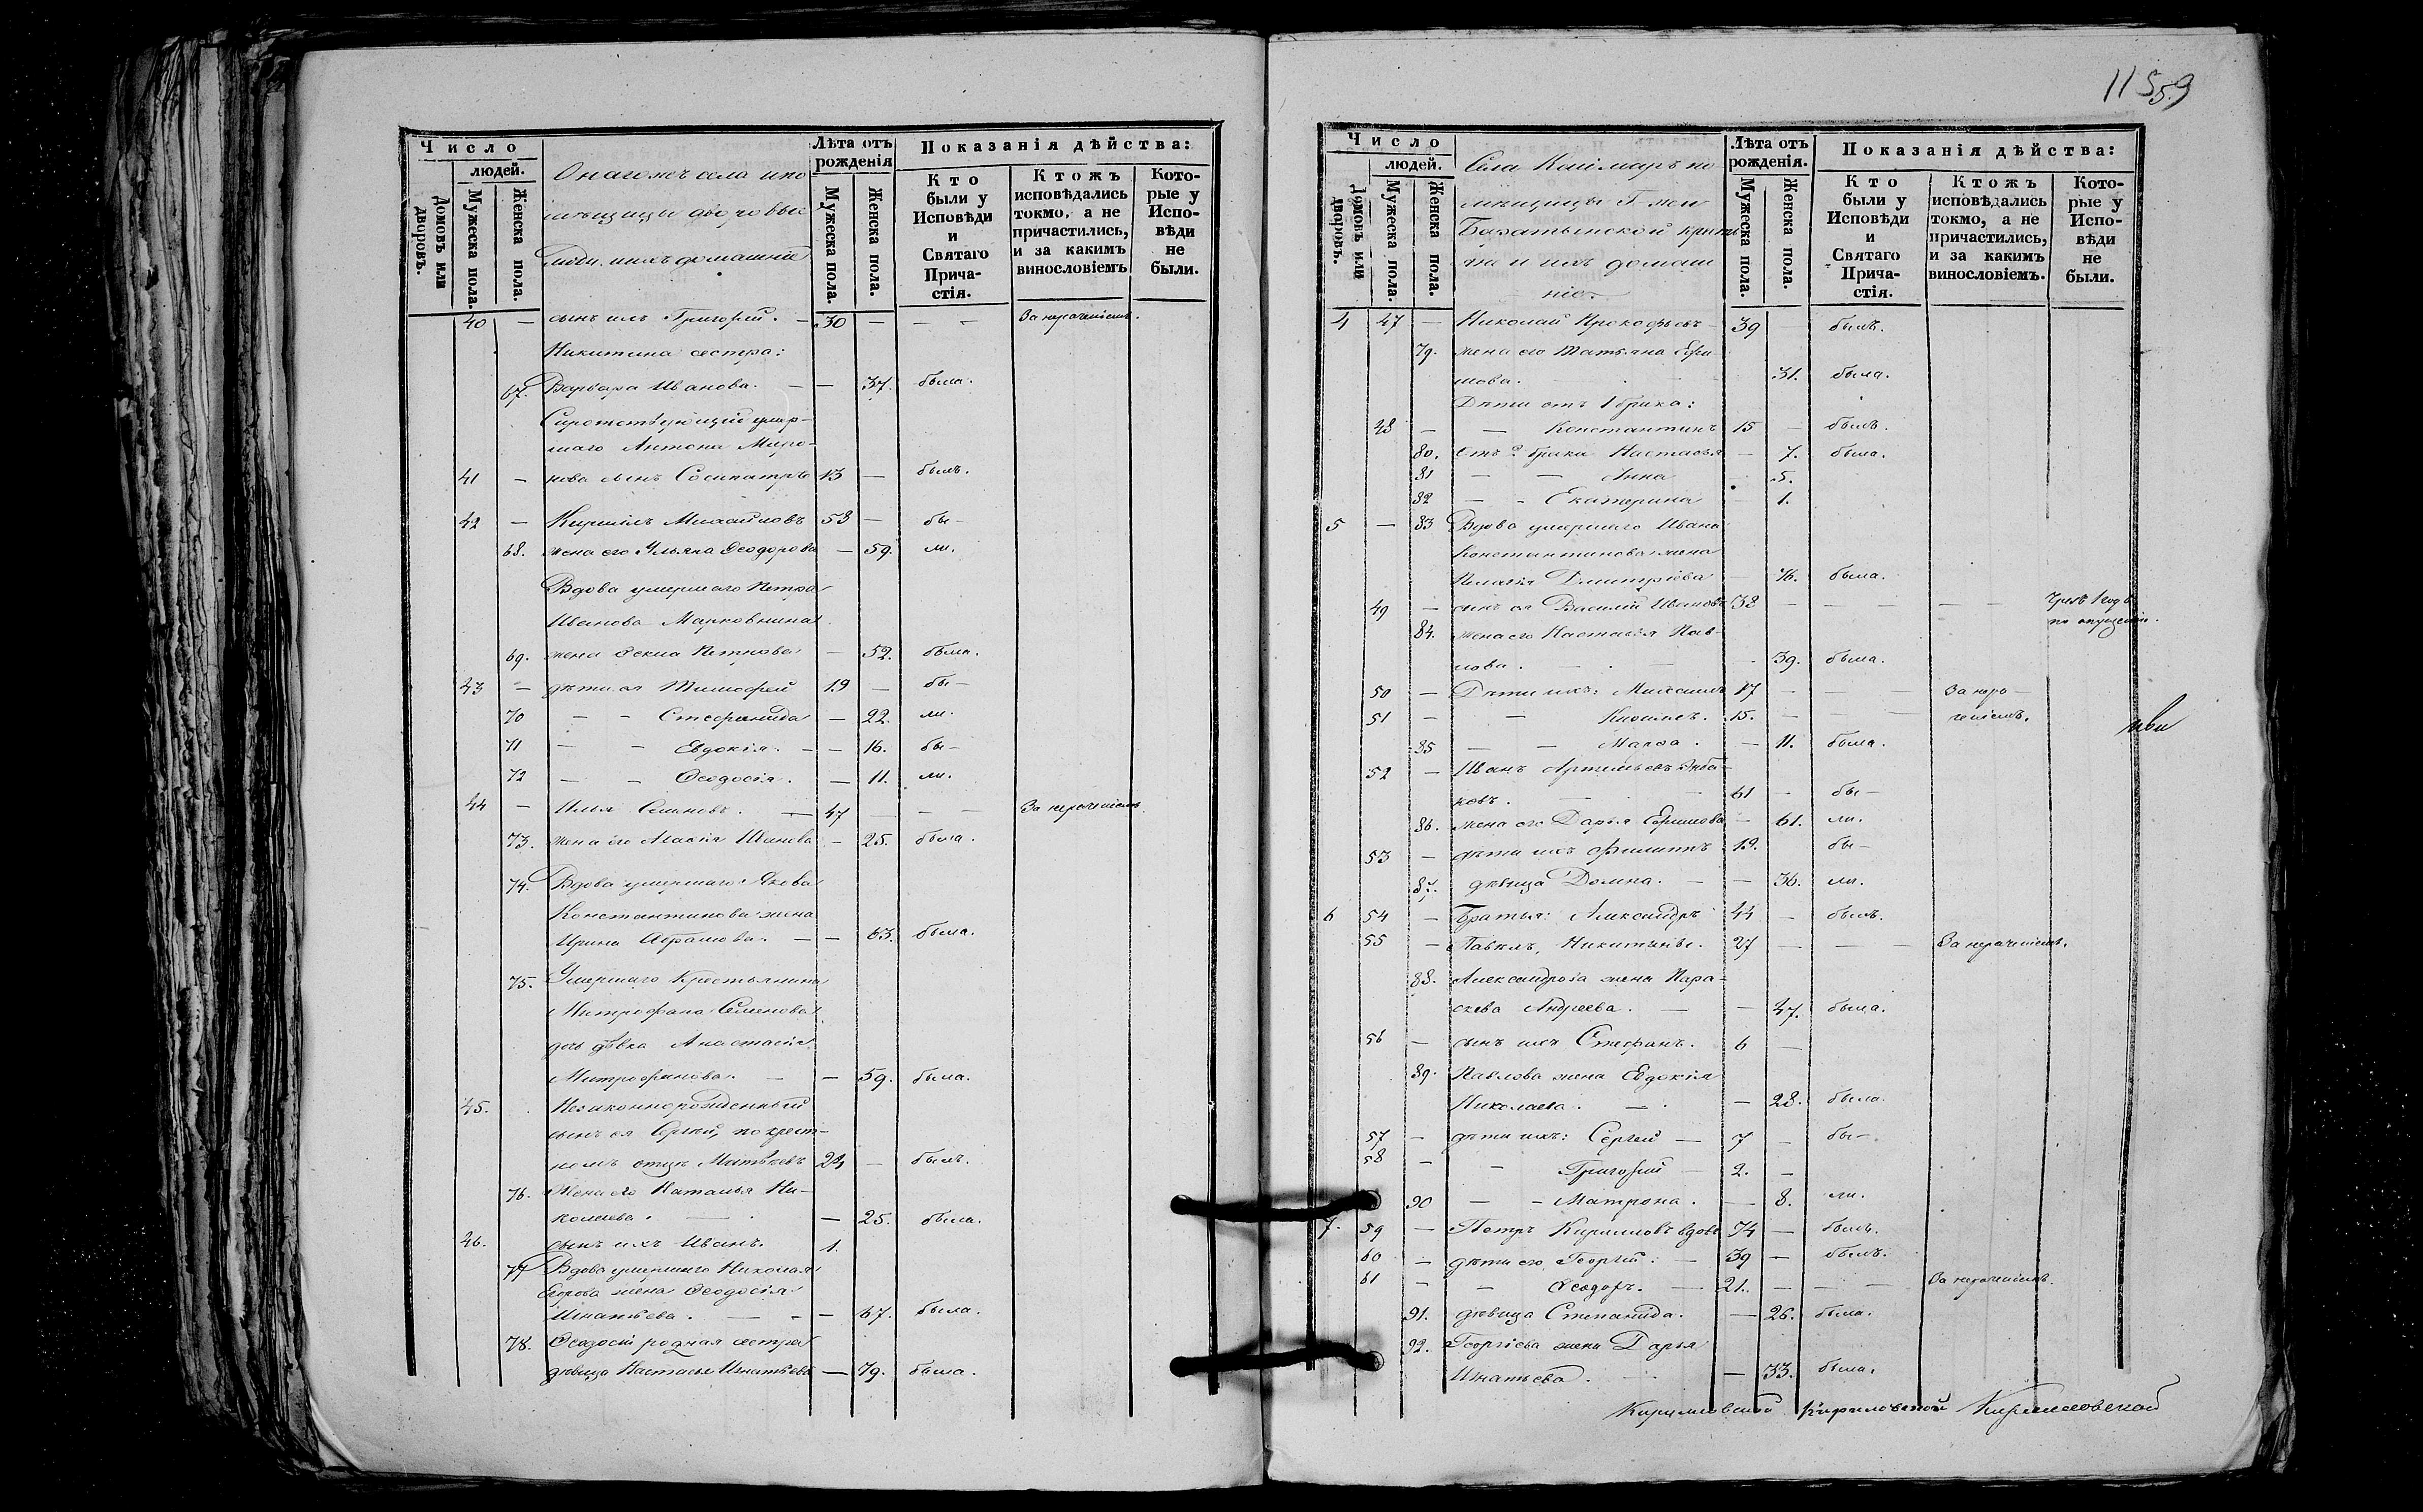 Число
людей.
Домовъ или дворовъ.
Мужеска пола.
Женска пола.
Онагожъ села и по
мѣщицы дворовые
люди и ихъ домашніе
Лѣта отъ рожденія
Мужеска пола.
Женска пола.
Показанія дѣйства:
Кто были у Исповѣди и Святаго Прича-стія.
Ктожъ исповѣдались токмо, а не причастились, и за какимъ винословіемъ
Кото-рые у Испо-вѣди не были.
40 — сынъ ихъ Григорій. — 30 — — — За нераченіемъ.
Никитина сестра:
67. Варвара Иванова. — — 37. была.
Сиротствующій умер-
шаго Антона Миро-
41 — нова сынъ Сосипатръ 13 — былъ.
42 — Кирилъ Михайловъ 58 — бы—
68. жена его Ульяна Ѳеодорова — 59. ли.
Вдова умершаго Петра
Иванова Марковнина
69. жена Ѳекла Петрова — 52. была.
43 — дѣти ея Тимофей 19 — бы—
70 — — Стефанида — 22. ли.
71 — — Евдокія. — — 16. бы—
72 — — Ѳеодосія. — 11. ли.
44 — Илья Семеновъ. — 47 — — — За нераченіемъ
73. жена его Агафія Иванова — 25. была.
74. Вдова умершаго Якова
Константинова жена
Ирина Абрамова. — — 63. была.
75. Умершаго Крестьянина
Митрофана Семенова
дочь дѣвка Анастасія
Митрофанова. — — 59. была.
45. Незаконнорожденный
сынъ ея Сергій, по крест-
номъ отцѣ Матвѣевъ 24 — былъ.
76. Жена его Наталья Ни-
колаева. — — 25. была.
46. сынъ ихъ Иванъ. 1.
77 Вдова умершаго Николая
Егорова жена Ѳеодосія
Игнатьева. — — — 67. была.
78. Ѳеодосіи родная сестра
дѣвица Настасья Игнатьева — 79. была.
1159
Число
людей.
Домовъ или дворовъ.
Мужеска пола.
Женска пола.
Села Кай-маръ по
мѣщицы Г-жи
Баратынской крестья
не и ихъ домаш
ніе.
Лѣта отъ рожденія.
Мужеска пола.
Женска пола.
Показанія дѣйства:
Кто были у Исповѣди и Святаго Прича-стія.
Ктожъ исповѣдались токмо, а не причастились, и за какимъ винословіемъ.
Кото-рые у Испо-вѣди не были.
4 47 — Николай Прокофьевъ — 39 — былъ.
79. жена его Татьяна Ефи-
мова. — 31. была.
Дѣти отъ 1 брака:
48 — — Константинъ 15 — былъ.
80. отъ 2 брака Настасья — 7. была.
81 — — Анна — 5.
82 — — Екатерина — 1.
5 — 83 Вдова умершаго Ивана
Константинова жена
Пелагія Дмитріева — 76. была.
49 — сынъ ея Василій Ивановъ 38 — — — — Чрезъ 1 годъ
по опущенію.
84. жена его Настасія Пав-
лова. — — 39. была.
50 — Дѣти ихъ: Михаилъ 17 — — За нера—
51 — — 15. — — ченіемъ.
85 — — Марѳа. — 11. была.
52 — Иванъ Артемьевъ
ковъ. — 61 — бы—
86. жена его Дарья Ефимова — 61. ли.
53 — дѣти ихъ Филиппъ 19. бы—
87. дѣвица Домна. — — 36. ли.
6 54 — Братья: Александръ 44 — былъ.
55 — Павелъ, Никитины. 27 — — — За нераченіемъ.
88. Александрова жена Пара-
скева Андреева. — — 47. была.
56 — сынъ ихъ Стефанъ. 6 —
89. Павлова жена Евдокія
Николаева. — — 28. была.
57 — дѣти ихъ: Сергей — 7 — бы—
58 — — Григорій — 2. —
90 — — Матрона. — 8. ли.
7. 59 — Петръ Кириловъ вдовъ 74 — былъ.
60 — дѣти его Георгій: — 39 — былъ.
61 — — Ѳеодоръ. — 21. — — — За нераченіемъ.
91. дѣвица Степанида. — 26. была.
92. Георгіева жена Дарья
Игнатьева. — 33. была.
Кириловской Кириловской Кирилловской